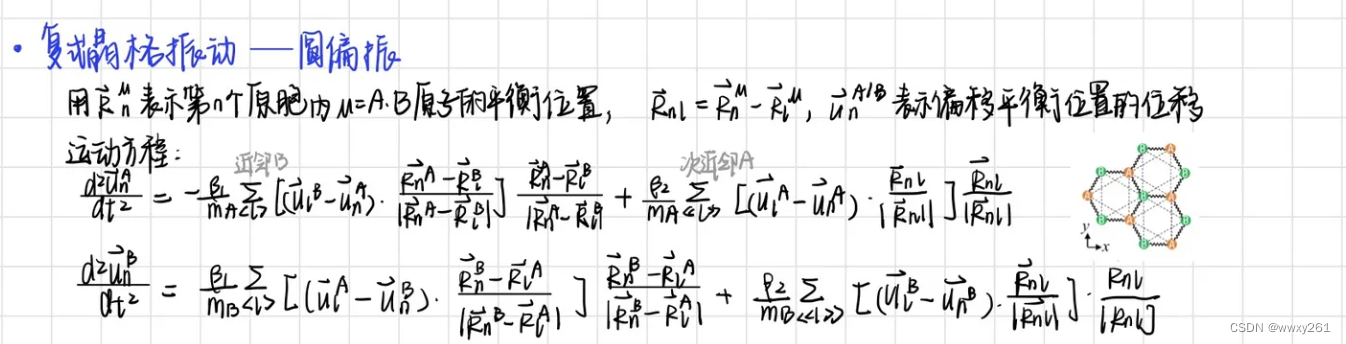 • 复式晶格振动 —— 圆偏振
用 $\vec{R}_n^{\mu}$ 表示第n个原胞内 μ=A.B原子的平衡位置, $\vec{R}_{nl} = \vec{R}_n^{\mu} - \vec{R}_l^{\mu}$, $\vec{u}_n^{A/B}$ 表示偏移平衡位置的位移
运动方程:
近邻B 次近邻A
$\frac{d^2\vec{u}_n^A}{dt^2} = -\frac{\beta_1}{m_A}\sum_{<l>}[(\vec{u}_l^B - \vec{u}_n^A)\cdot\frac{\vec{R}_n^A - \vec{R}_l^B}{|\vec{R}_n^A - \vec{R}_l^B|}]\frac{\vec{R}_n^A - \vec{R}_l^B}{|\vec{R}_n^A - \vec{R}_l^B|} + \frac{\beta_2}{m_A}\sum_{<<l>>}[(\vec{u}_l^A - \vec{u}_n^A)\cdot\frac{\vec{R}_{nl}}{|\vec{R}_{nl}|}]\frac{\vec{R}_{nl}}{|\vec{R}_{nl}|}$
$\frac{d^2\vec{u}_n^B}{dt^2} = \frac{\beta_1}{m_B}\sum_{<l>}[(\vec{u}_l^A - \vec{u}_n^B)\cdot\frac{\vec{R}_n^B - \vec{R}_l^A}{|\vec{R}_n^B - \vec{R}_l^A|}]\frac{\vec{R}_n^B - \vec{R}_l^A}{|\vec{R}_n^B - \vec{R}_l^A|} + \frac{\beta_2}{m_B}\sum_{<<l>>}[(\vec{u}_l^B - \vec{u}_n^B)\cdot\frac{\vec{R}_{nl}}{|\vec{R}_{nl}|}]\cdot\frac{R_{nl}}{|R_{nl}|}$
y
x
CSDN @wwxy261